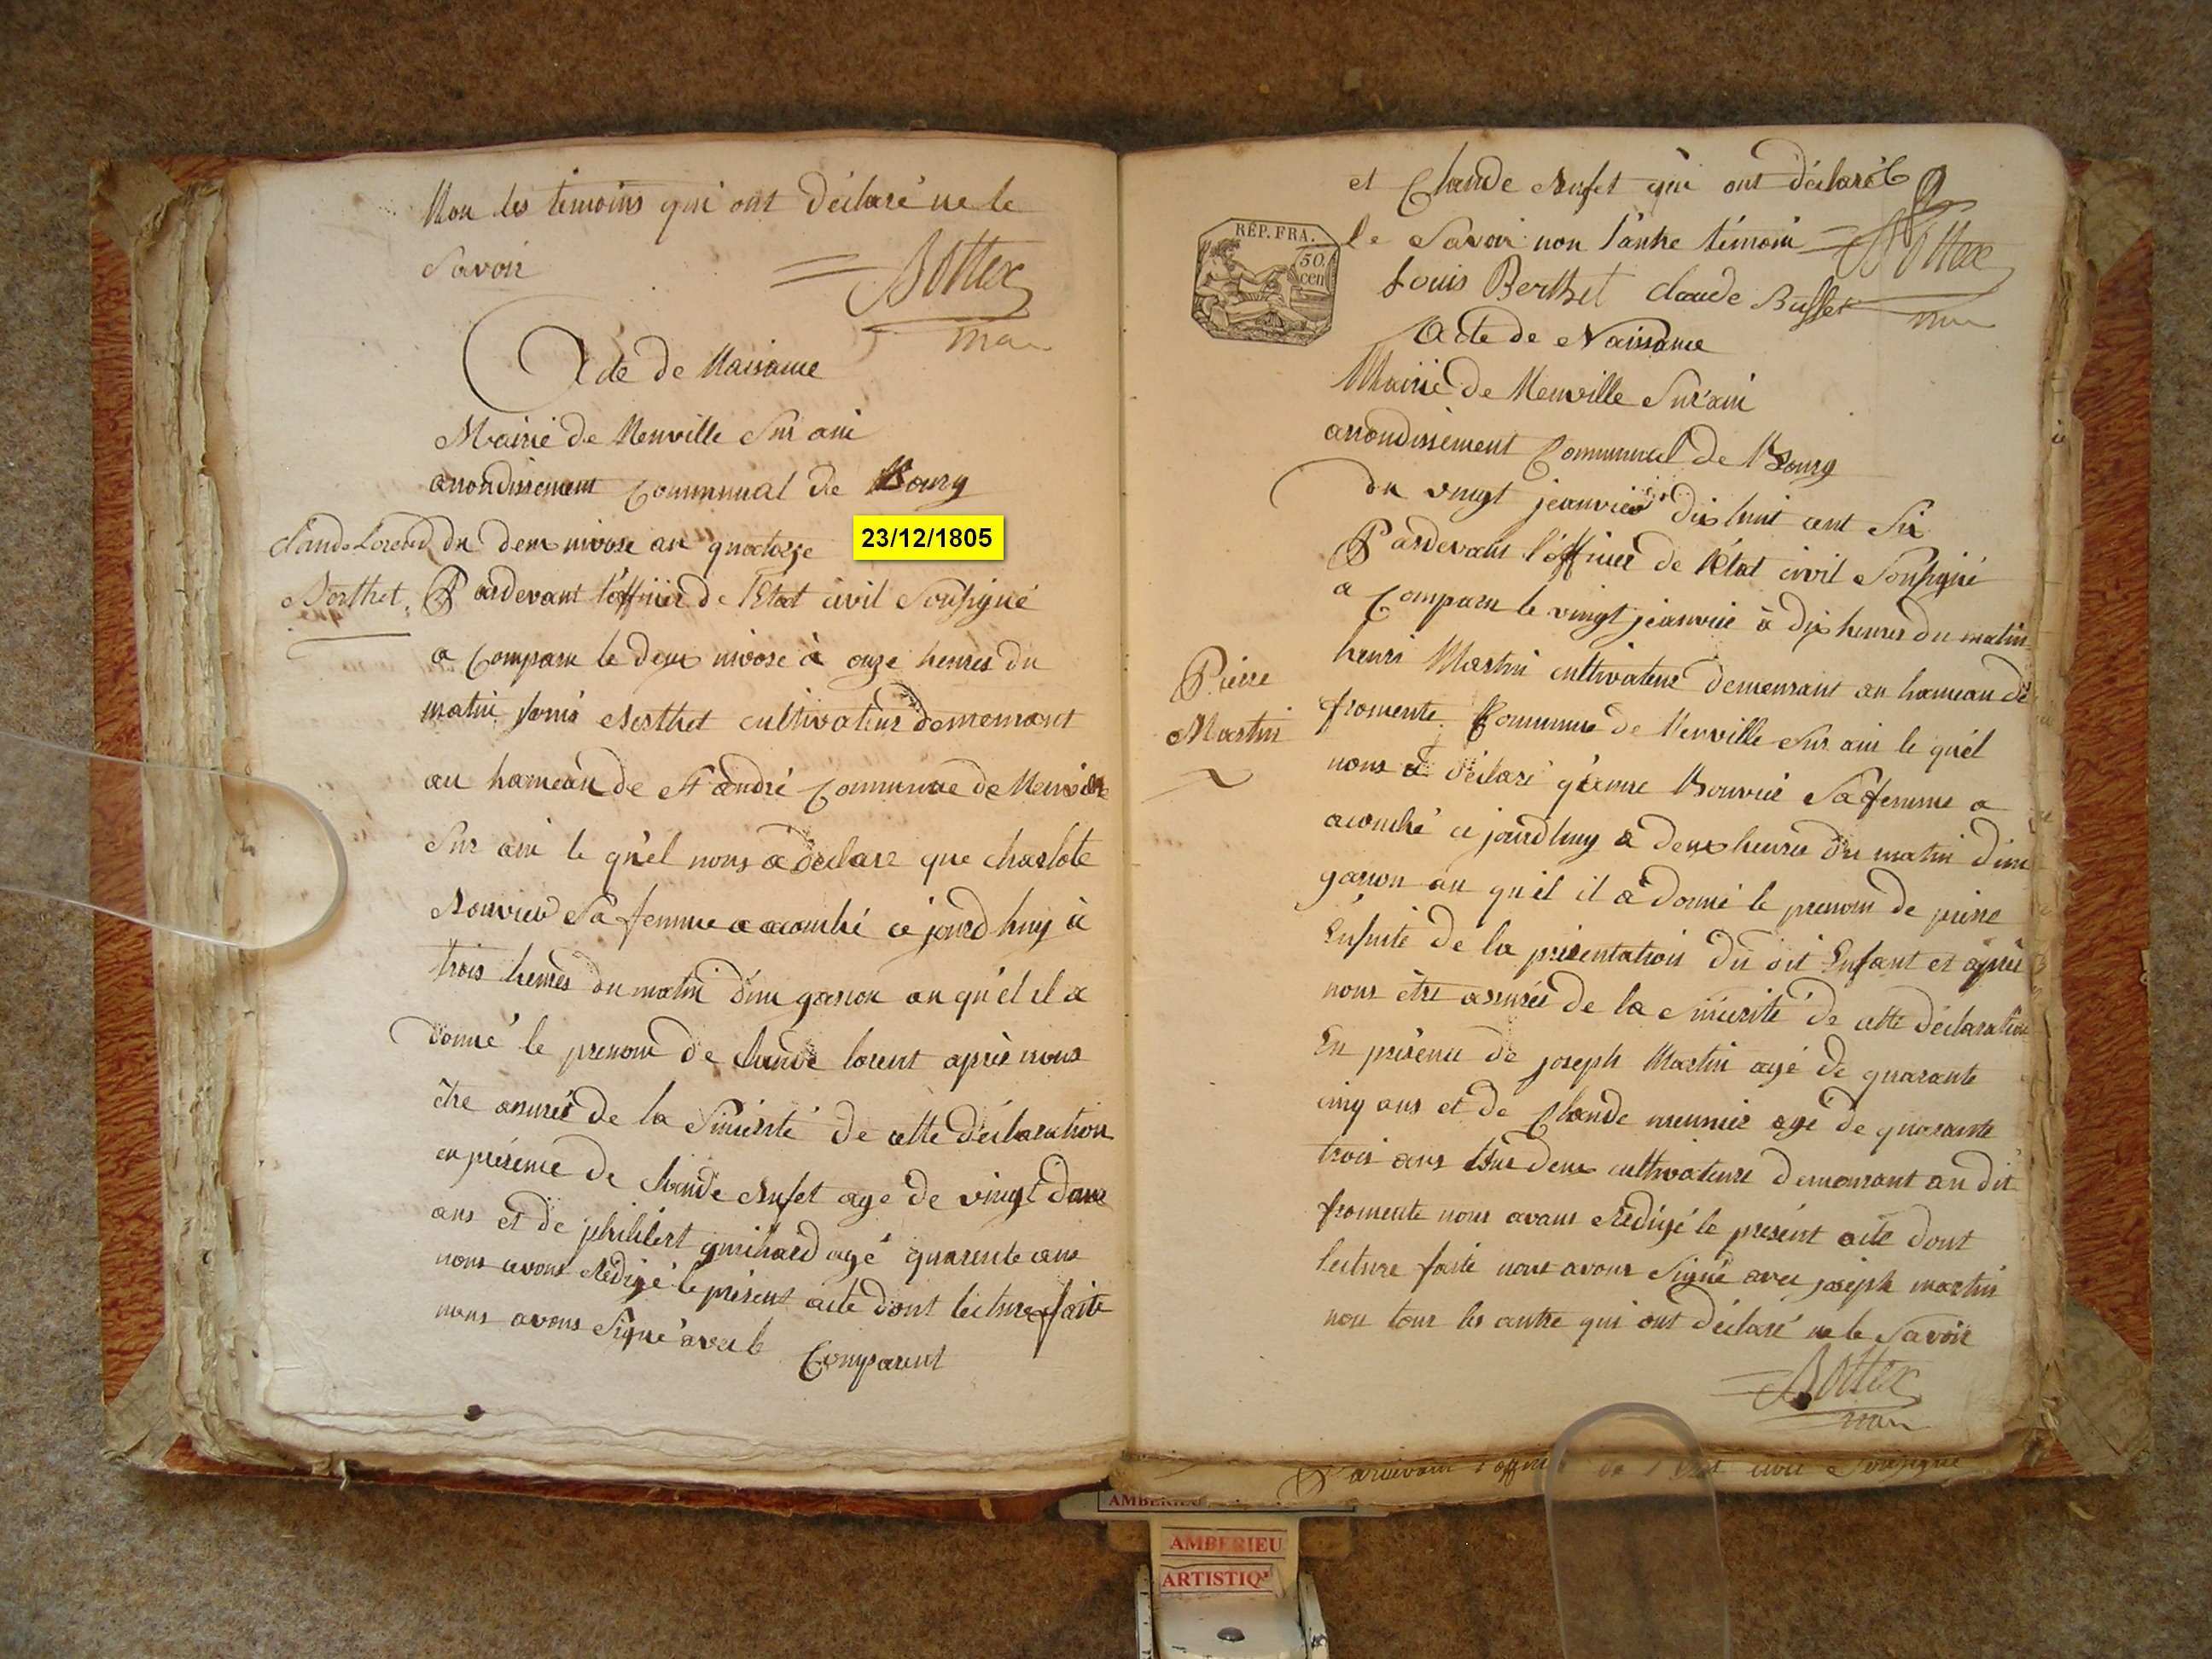 Non les témoins qui ont déclaré ne le
Savoir
Bottex
mai
Acte de Naissance
Mairie de Neuville Sur ain
arrondissement Communal de Bourg
Claude Lorend
Berthet
du deux nivose an quatorze
23/12/1805
Pardevant l'officier de l'Etat civil Soussigné
a Comparu le deux nivose à onze heures du
matin Louis Berthet cultivateur demeurant
au hameau de St andré Commune de Neuville
Sur ain le quél nous a déclare que charlote
Bouvier Sa femme a acouché ce jourd huy à
trois heures du matin d'un garson au qu'él il a
donné le prenom de Claude lorent après nous
être assurés de la Sincerité de cette déclaration
en présence de Claude Bufet age de vingt deux
ans et de philibert guichard agé quarente ans
nous avons Rédigé le présent acte dont lecture faite
nous avons Signé avec le Comparent
et Claude Bufet qui ont déclaré
le Savoir non l'autre témoin
Bottex
mai
RÉP. FRA.
50
cen
Louis Berthet claude Buffet
Acte de Naissance
Mairie de Neuville Sur ain
arrondissement Communal de Bourg
du vingt jeanvier dix huit cent Six
Pardevant l'officier de l'Etat civil Soussigné
a Comparu le vingt jeanvier à dix heures du matin
Pierre
Martin
henri Martin cultivateur demeurant au hameau de
fromente Commune de Neuville Sur ain le quél
nous a déclaré qu'anne Bouvier Sa femme a
acouché ce jourdhuy a deux heures du matin d'un
garson au qu'él il a donné le prenom de pierre
Ensuite de la présentation du dit Enfant et après
nous être assurés de la Sincerité de cette déclaration
En présence de joseph Martin agé de quarante
cinq ans et de Claude meunier agé de quarante
trois ans tous deux cultivateurs demeurant au dit
fromente nous avons Rédigé le présent acte dont
lecture faite nous avons Signé avec joseph martin
non tous les autre qui ont déclaré ne le Savoir
Bottex
mai
Pardevant l'officier de l'Etat civil Soussigné
AMBERIEU
AMBERIEU
ARTISTIQ